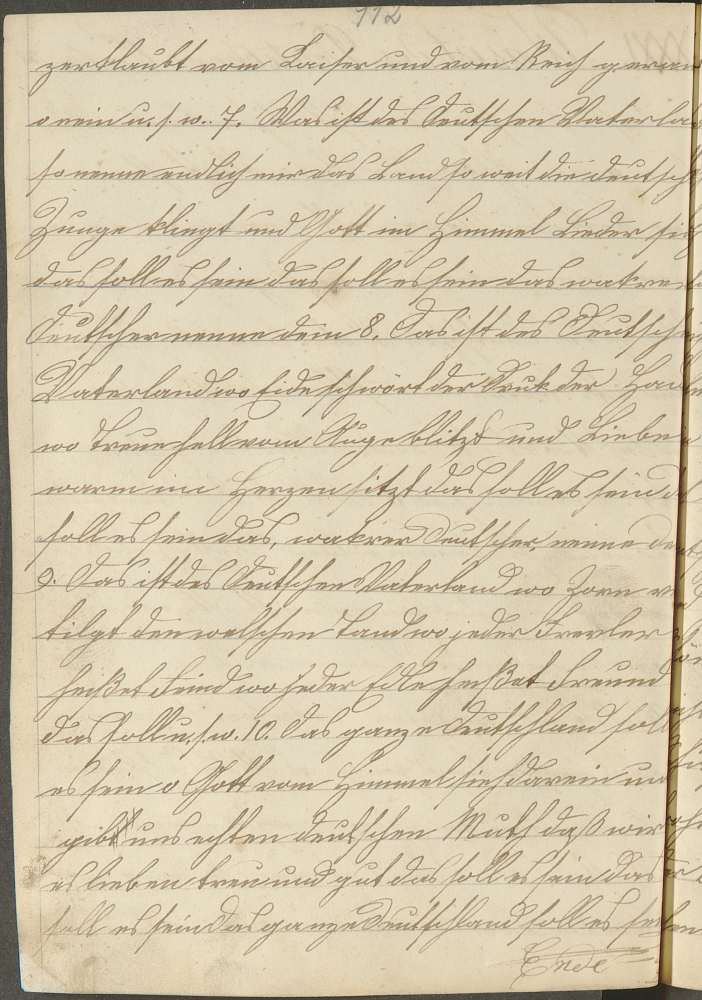 112
zerklaubt vom Kaiser und vom Reich geraubt
o nein u. s. w. 7. Was ist des Deutschen Vaterland
so nenne endlich mir das Land so weit die deutsche
Zunge klingt und Gott im Himmel Lieder sig
das soll es sein das soll es sein das wakrer
Deutscher nenne dein 8. Das ist des Deutschen
Vaterland wo Eide schwört der Druk der Hände
wo Treue hell vom Auge blitzt und Liebe
warm im Herzen sitzt das soll es sein d
soll es sein das, wakrer Deutscher, nenne dein
9. Das ist des Deutschen Vaterland wo Zorn ver
tilgt den welschen Tand wo jeder Frevler
heißet Feind wo jeder Edle heißet Freund
das soll u. s. w. 10. Das ganze Deutschland soll
es sein o Gott vom Himmel sieh darein und
gib uns echten deutschen Muth daß wir
es lieben treu und gut das soll es sein das
soll es sein das ganze Deutschland soll es sein
Ende